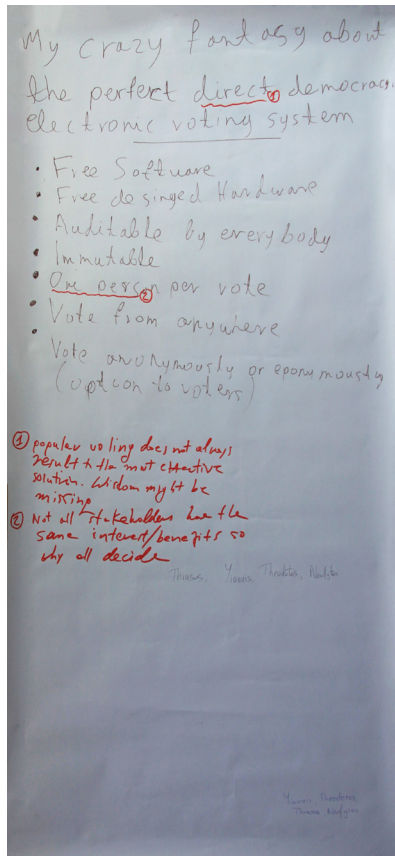 My crazy fantasy about
the perfect direct ① democracy
electronic voting system
• Free Software
• Free desinged Hardware
• Auditable by everybody
• Immutable
• One person ② per vote
• Vote from anywhere
• Vote anonymously or eponymously
(option to voters)
① popular voting does not always
result to the most effective
solution. Wisdom might be
missing
② Not all stakeholders have the
same interest/benefits so
why all decide
Yiannis Theodotos